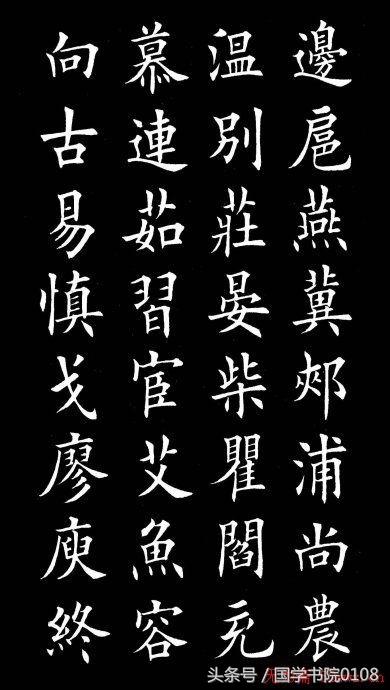 邊扈燕冀郟浦尚農
温別莊晏柴瞿閻充
慕連茹習宦艾魚容
向古易慎戈廖庾終
头条号 / 国学书院0108